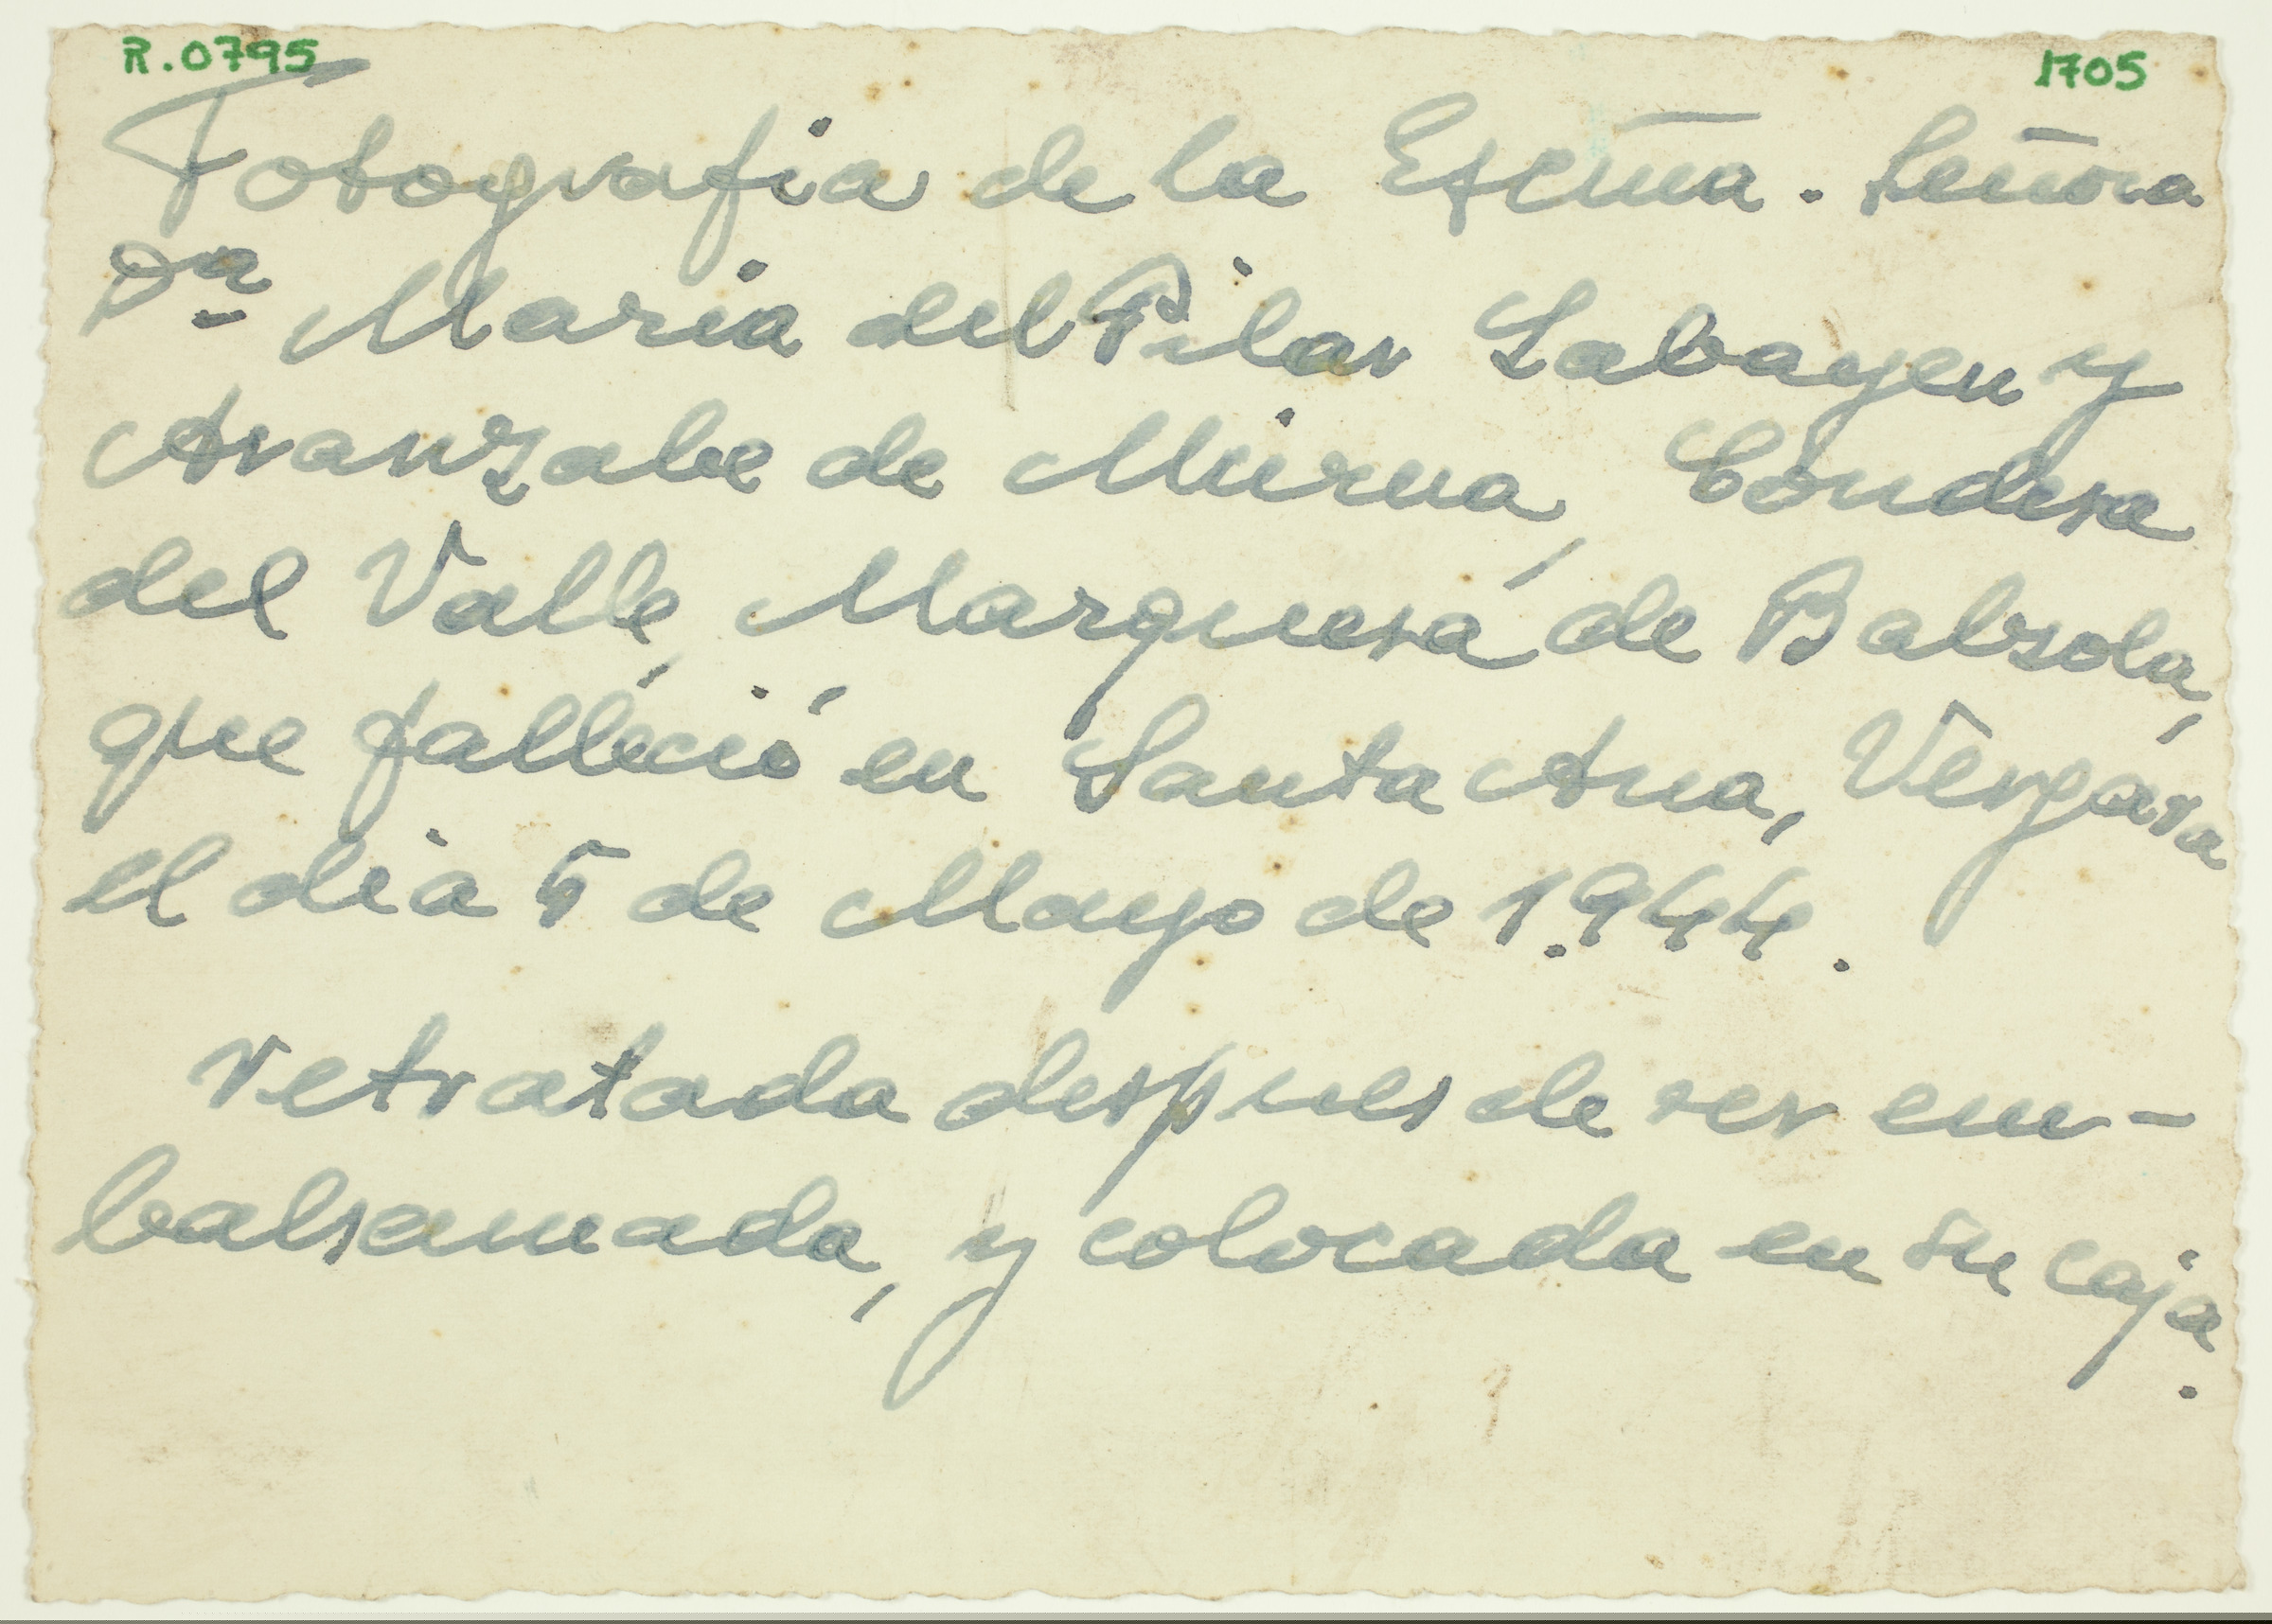 R.0795 1705
Fotografia de la Excma. Señora
Dª Maria del Pilar Labayen y
Aranzabe de Murua, Condesa
del Valle, Marquesa de Balzola,
que falleció en Santa Ana, Vergara
el dia 5 de Mayo de 1.944.
retratada despues de ser em-
balsamada, y colocada en su caja.